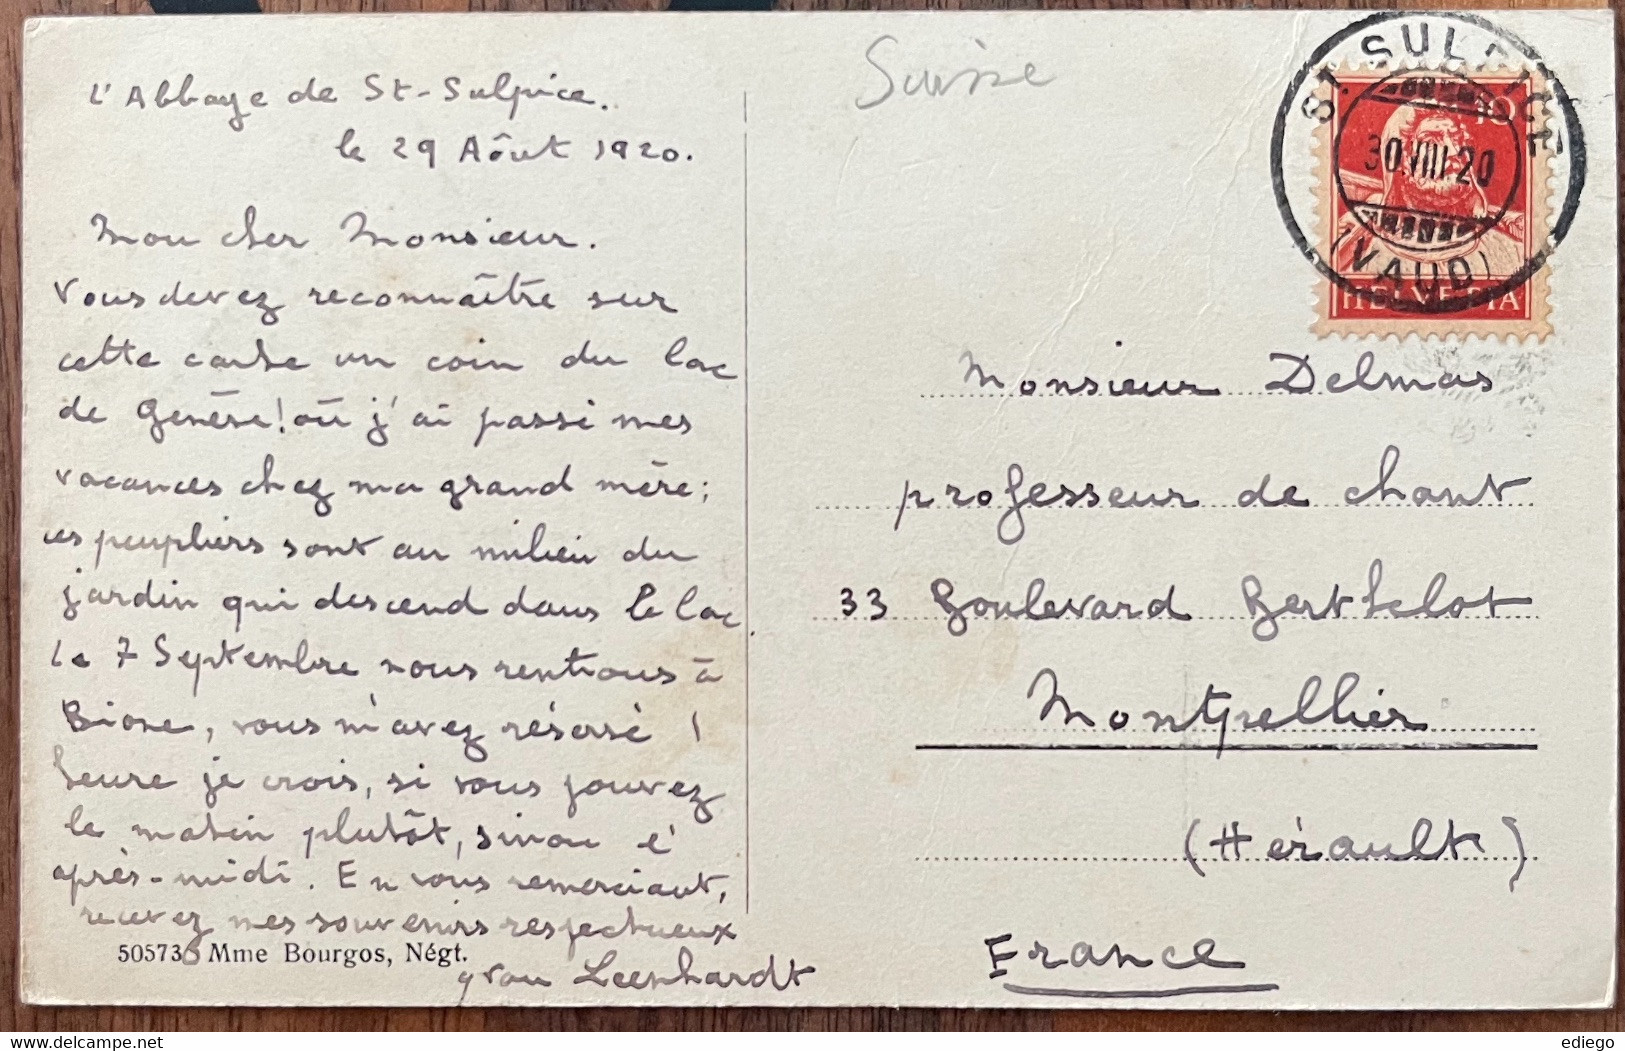 L'Abbaye de St-Sulpice.
le 29 Aôut 1920.
Mon cher Monsieur.
Vous devez reconnaître sur
cette carte un coin du lac
de Genève! où j'ai passé mes
vacances chez ma grand mère;
ces peupliers sont au milieu du
jardin qui descend dans le lac.
Le 7 Septembre nous rentrons à
Bione, vous m'avez réservé 1
heure je crois, si vous pouvez
le matin plutôt, sinon l'
après-midi. En vous remerciant,
recevez mes souvenirs respectueux
Yvan Leenhardt
50573 Mme Bourgos, Négt.
Suisse
ST. SULPICE
10
30.VIII.20
(VAUD)
HELVETIA
Monsieur Delmas
professeur de chant
33 Boulevard Berthelot
Montpellier
(Hérault)
France
ediego